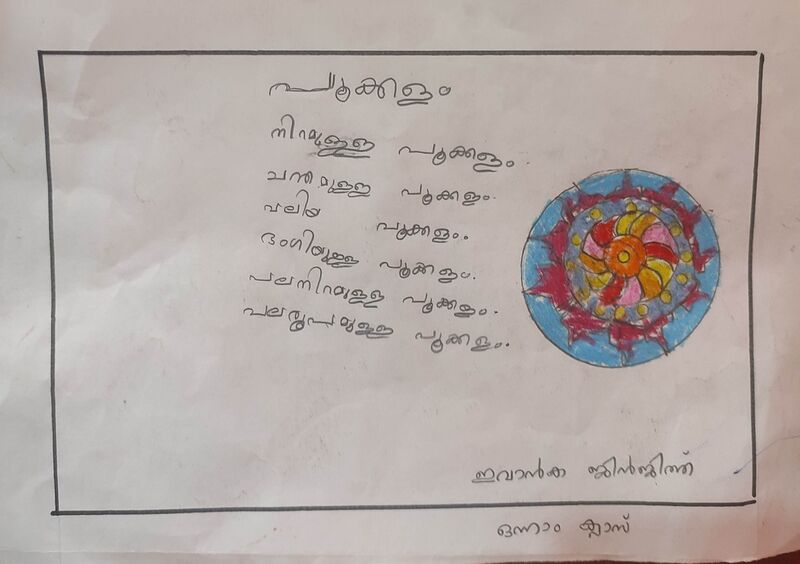 പൂക്കളം
നിറമുള്ള പൂക്കളം.
ചന്തമുള്ള പൂക്കളം.
വലിയ പൂക്കളം.
ഭംഗിയുള്ള പൂക്കളം.
പലനിറമുള്ള പൂക്കളം.
പലരൂപമുള്ള പൂക്കളം.
ഇവാൻക ജിൻജിത്ത്
ഒന്നാം ക്ലാസ്